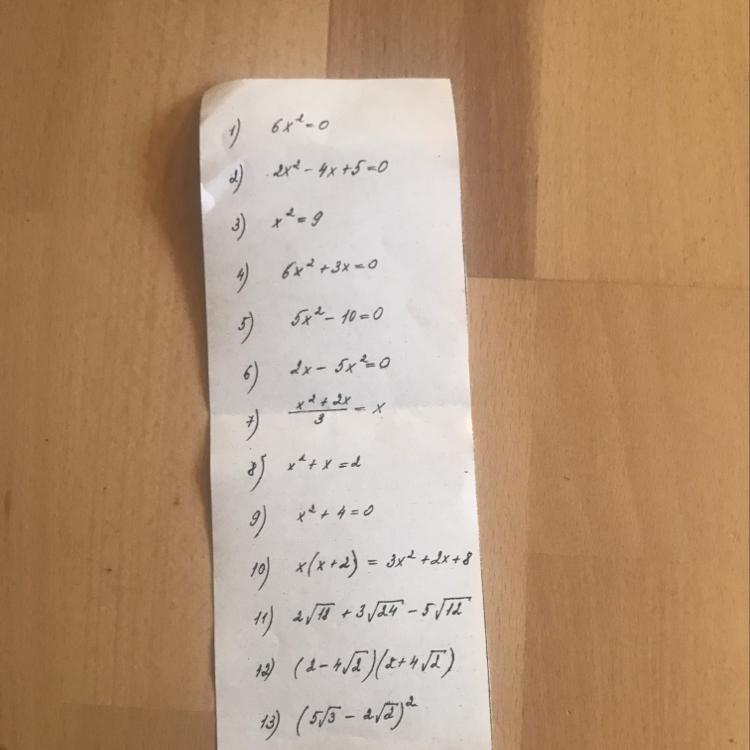 1) 6x² = 0
2) 2x² - 4x + 5 = 0
3) x² = 9
4) 6x² + 3x = 0
5) 5x² - 10 = 0
6) 2x - 5x² = 0
7) (x² + 2x)/3 = x
8) x² + x = 2
9) x² + 4 = 0
10) x(x+2) = 3x² + 2x + 8
11) 2√18 + 3√24 - 5√12
12) (2 - 4√2)(2 + 4√2)
13) (5√3 - 2√2)²